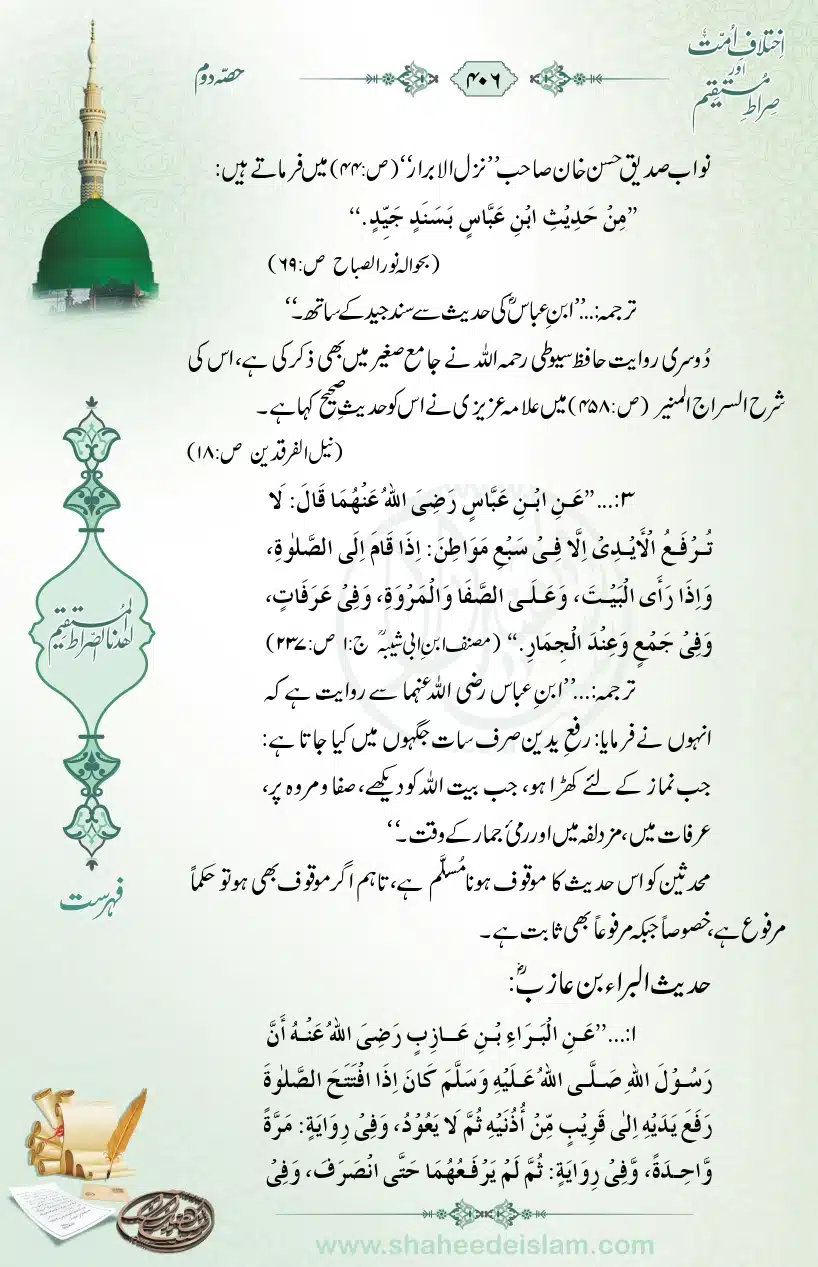 اِختلافِ اُمّت
اور
صراطِ مُستقیم
۴۰۶
حصّہ دوم
نواب صدیق حسن خان صاحب ’’نزل الابرار‘‘ (ص:۴۴) میں فرماتے ہیں:
’’مِنْ حَدِیْثِ ابْنِ عَبَّاسٍ بَسَنَدٍ جَیِّدٍ.‘‘
(بحوالہ نور الصباح ص:۶۹)
ترجمہ:…’’ابنِ عباسؓ کی حدیث سے سند جید کے ساتھ۔‘‘
دُوسری روایت حافظ سیوطی رحمہ اللہ نے جامع صغیر میں بھی ذکر کی ہے، اس کی
شرح السراج المنیر (ص:۴۵۸) میں علامہ عزیزی نے اس کو حدیثِ صحیح کہا ہے۔
(نیل الفرقدین ص:۱۸)
۳:…’’عَنِ ابْنِ عَبَّاسٍ رَضِیَ اللہُ عَنْھُمَا قَالَ: لَا
تُرْفَعُ الْأَیْدِیْ اِلَّا فِیْ سَبْعِ مَوَاطِنَ: اِذَا قَامَ اِلَی الصَّلٰوۃِ،
وَاِذَا رَأَی الْبَیْتَ، وَعَلَی الصَّفَا وَالْمَرْوَۃِ، وَفِیْ عَرَفَاتٍ،
وَفِیْ جَمْعٍ وَعِنْدَ الْجِمَارِ.‘‘ (مصنف ابنِ ابی شیبہؒ ج:۱ ص:۲۳۷)
ترجمہ:…’’ابنِ عباس رضی اللہ عنہما سے روایت ہے کہ
انہوں نے فرمایا: رفعِ یدین صرف سات جگہوں میں کیا جاتا ہے:
جب نماز کے لئے کھڑا ہو، جب بیت اللہ کو دیکھے، صفا و مروہ پر،
عرفات میں، مزدلفہ میں اور رمیٔ جمار کے وقت۔‘‘
محدثین کو اس حدیث کا موقوف ہونا مُسلَّم ہے، تاہم اگر موقوف بھی ہو تو حکماً
مرفوع ہے، خصوصاً جبکہ مرفوعاً بھی ثابت ہے۔
حدیث البراء بن عازبؓ:
۱:…’’عَنِ الْبَرَاءِ بْنِ عَازِبٍ رَضِیَ اللہُ عَنْہُ أَنَّ
رَسُوْلَ اللہِ صَلَّی اللہُ عَلَیْہِ وَسَلَّمَ کَانَ اِذَا افْتَتَحَ الصَّلٰوۃَ
رَفَعَ یَدَیْہِ اِلٰی قَرِیْبٍ مِّنْ أُذُنَیْہِ ثُمَّ لَا یَعُوْدُ، وَفِیْ رِوَایَۃٍ: مَرَّۃً
وَّاحِدَۃً، وَّفِیْ رِوَایَۃٍ: ثُمَّ لَمْ یَرْفَعْھُمَا حَتَّی انْصَرَفَ، وَفِیْ
اھدنا الصراط المستقیم
فہرست
www.shaheedeislam.com